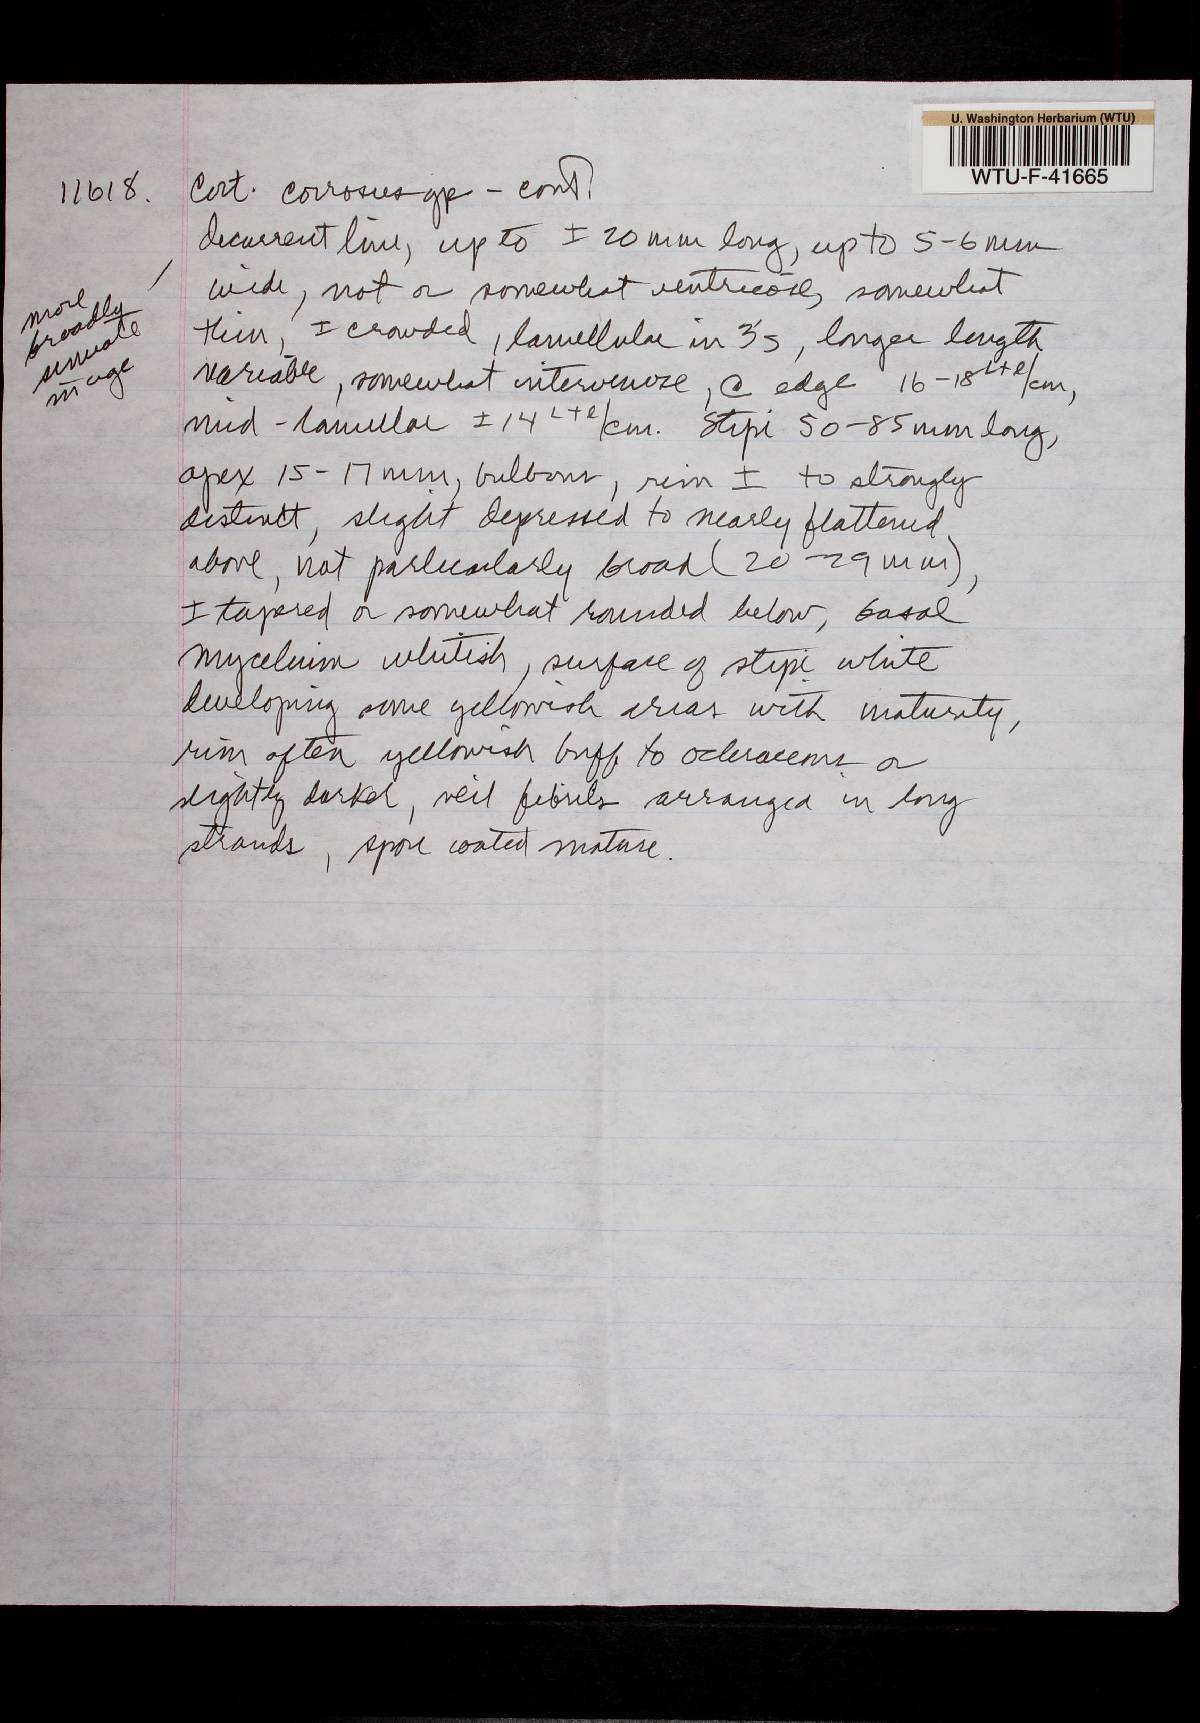 U. Washington Herbarium (WTU)
WTU-F-41665
11618. Cort. corrosus gp - cont.
decurrent line, up to ± 20 mm long, up to 5-6 mm
wide, not or somewhat ventricose, somewhat
thin, ± crowded, lamellulae in 3's, longer length
variable, somewhat intervenose, @ edge 16-18 L+l/cm,
mid-lamellae ± 14 L+l/cm. Stipe 50-85 mm long,
apex 15-17 mm, bulbous, rim ± to strongly
distinct, slight depressed to nearly flattened
above, not particularly broad (20-29 mm),
± tapered or somewhat rounded below, basal
mycelium whitish, surface of stipe white
developing some yellowish areas with maturity,
rim often yellowish buff to ochraceous or
slightly darker, veil fibrils arranged in long
strands, spore coated mature.
more
broadly
sinuate
in age